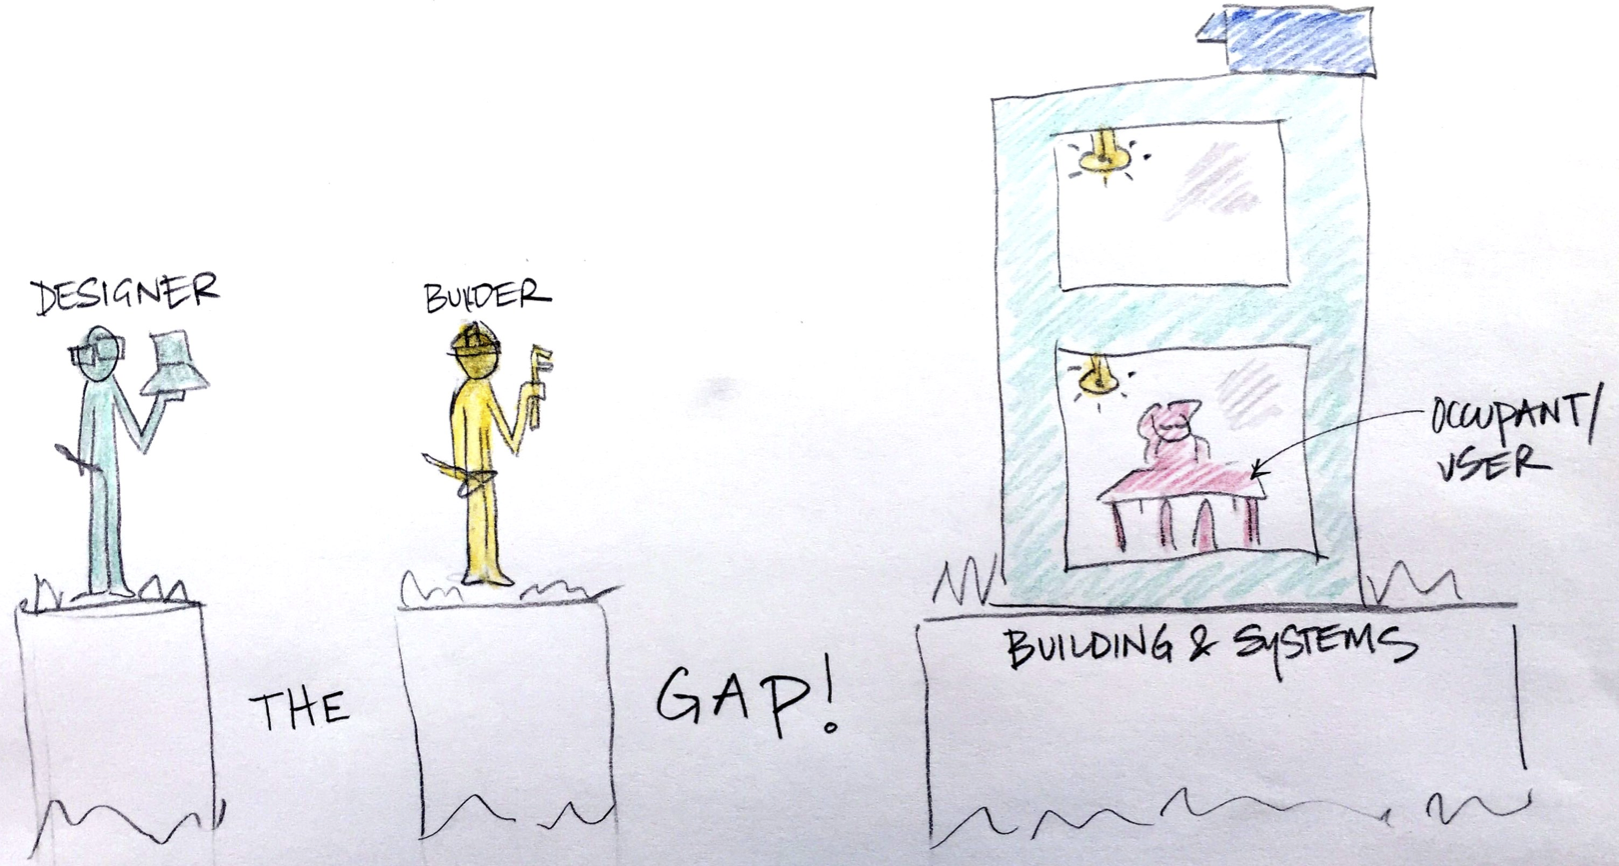 DESIGNER
BUILDER
OCCUPANT/
USER
BUILDING & SYSTEMS
THE GAP!